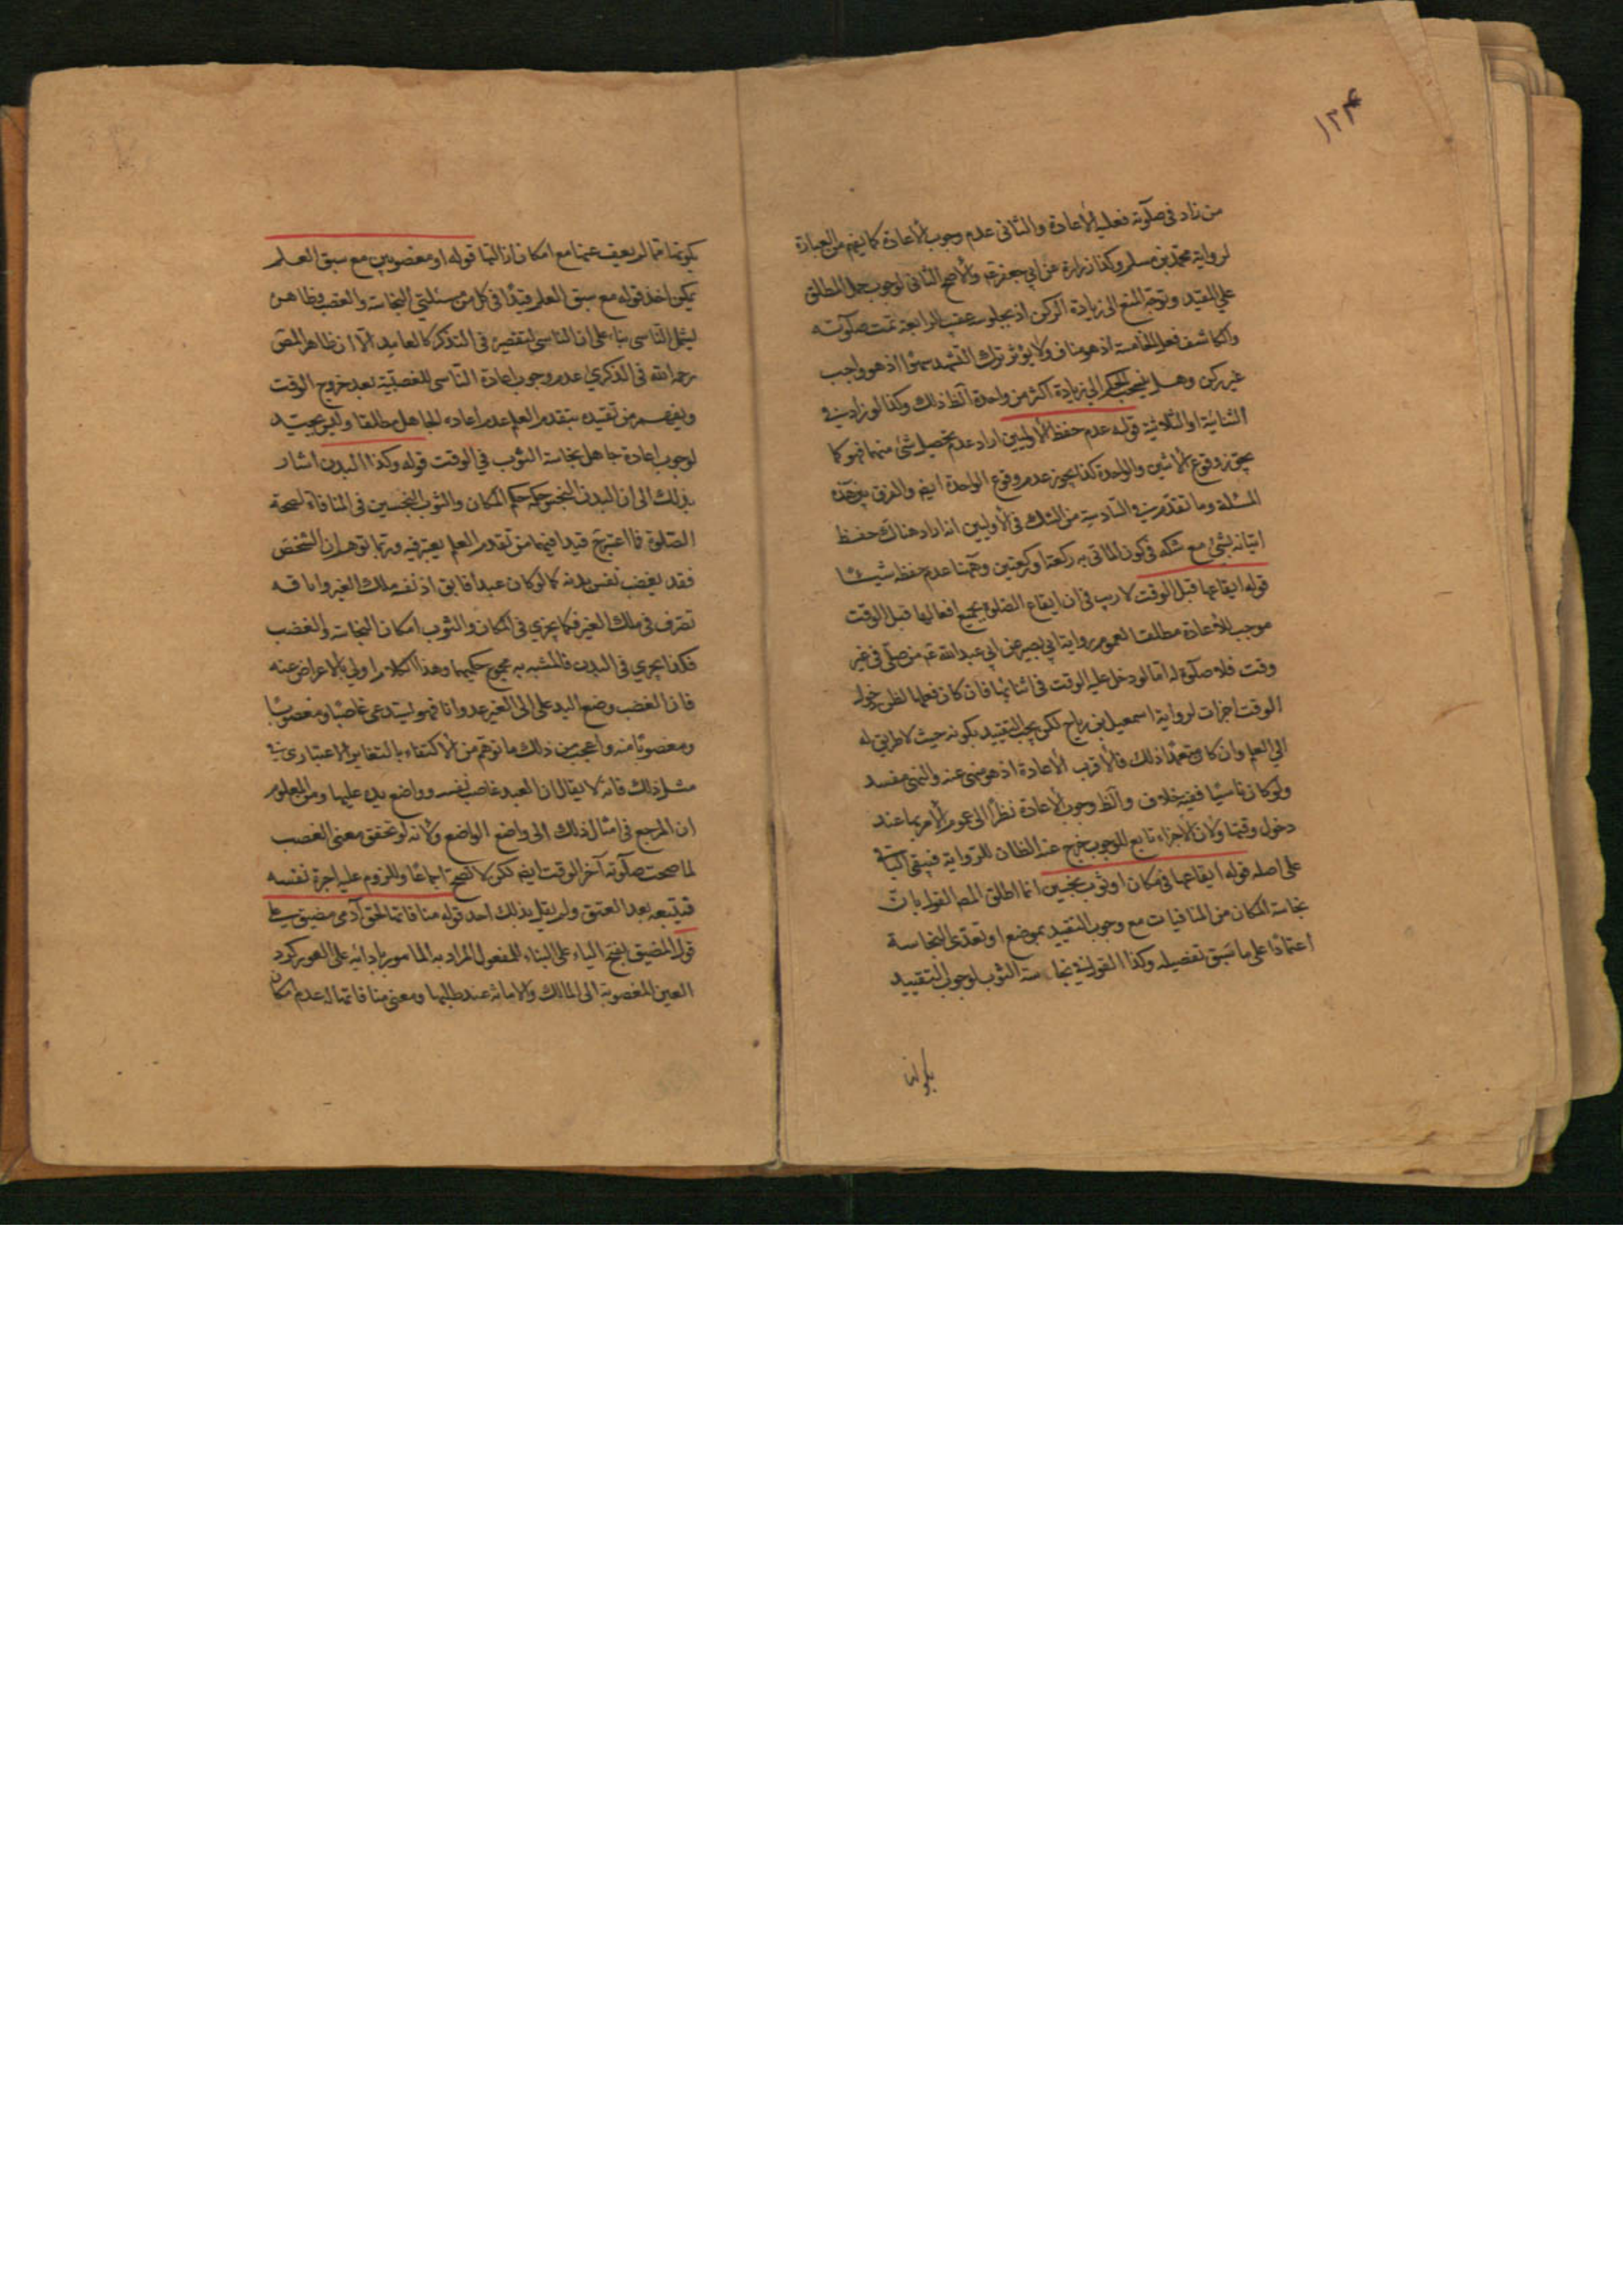 ١٢٤
من زاد في صلوته فعليه الاعادة والثاني عدم وجوب الاعادة كما يفهم من العبارة
لرواية محمد بن مسلم وكذا زرارة عن ابي جعفر ع والاصح الثاني لوجوب حمل المطلق
على المقيد وتوجه المنع الى زيادة الركن اذ بجلوسه عقيب الرابعة تمت صلوته
والكاشف فعل الخامسة اذ هو مناف ولا يؤثر ترك التشهد سهوا اذ هو واجب
غير ركن وهل ينسحب الحكم الى زيادة اكثر من واحدة الظ ذلك وكذا لو زاد في
الثنائية او الثلاثية قوله عدم حفظ الاوليين اراد عدم تحصيل شئ منهما فهو كما
يجوز وقوع الاثنين والواحدة كذا يجوز عدم وقوع الواحدة ايضا والفرق بين هذه
المسئلة وما تقدم في السادسة من الشك في الاوليين انه اراد هناك حفظ
اتيانه بشئ مع شكه في كون الماتي به ركعة او ركعتين وههنا عدم حفظه شيئا
قوله ايقاعها قبل الوقت لا ريب في ان ايقاع الصلوة بجميع افعالها قبل الوقت
موجب للاعادة مطلقا لعموم رواية ابي بصير عن ابي عبد الله ع من صلى في غير
وقت فلا صلوة له اما لو دخل عليه الوقت في اثنائها فان كان فعلها لظن دخول
الوقت اجزات لرواية اسمعيل بن رباح لكن يجب التقييد بكونه حيث لا طريق له
الى العلم وان كان متعمدا ذلك فالاقرب الاعادة اذ هو منهى عنه والنهى مفسد
ولو كان ناسيا ففيه خلاف والظ وجوب الاعادة نظرا الى عموم الامر بما عند
دخول وقتها ولان الاجزاء تابع للوجوب خرج عنه الظان للرواية فيبقى الباقي
على اصله قوله ايقاعها في مكان او ثوب نجسين انما اطلق المص القول بان
نجاسة المكان من المنافيات مع وجوب التقييد بموضع او تعدى النجاسة
اعتمادا على ما سبق تفصيله وكذا القول في نجاسة الثوب لوجوب التقييد
بكونها
بكونها مما لم يعف عنها مع امكان ازالتها قوله او مغصوبين مع سبق العلم
يمكن اخذ قوله مع سبق العلم قيدا في كل من مسئلتي النجاسة والغصب فظاهره
ليشمل الناسى بناء على ان الناسى لتقصيره في التذكر كالعامد الا ان ظاهر المص
رحمه الله في الذكرى عدم وجوب اعادة الناسى للغصبية بعد خروج الوقت
ويفهم من تقييده بتقدم العلم عدم اعادة الجاهل مطلقا وليس بجيد
لوجوب اعادة جاهل نجاسة الثوب في الوقت قوله وكذا البدن اشار
بذلك الى ان البدن النجس حكمه حكم المكان والثوب النجسين في المنافاة لصحة
الصلوة فما اعتبر قيدا فيهما من تقدم العلم يعتبر فيه وربما توهم ان الشخص
فقد يغصب نفس بدنه كما لو كان عبدا فابق اذ نفسه ملك الغير واباقه
تصرف في ملك الغير فكما يجرى في المكان والثوب امكان النجاسة والغصب
فكذا يجرى في البدن فالمشبه به مجموع حكميهما وهذا الكلام اولى بالاعراض عنه
فان الغصب وضع اليد على الغير عدوانا فهو يستدعى غاصبا ومغصوبا
ومغصوبا منه واعجب من ذلك ما توهم من الاكتفاء بالتغاير الاعتبارى في
مثل ذلك فانه لا يقال ان العبد غاصب نفسه وواضع يده عليها ومن المعلوم
ان المرجع في امثال ذلك الى واضع الواضع ولانه لو تحقق معنى الغصب
لما صحت صلوته آخر الوقت ايضا لكن لا تصح اجماعا وللزوم عليه اجرة نفسه
فيتبعه بعد العتق ولم يقل بذلك احد قوله منافاتها لحق آدمى مضيق على
قول المضيق بفتح الياء على البناء للمفعول المراد به المامور بادائه على الفور كرد
العين المغصوبة الى المالك والامانة عند طلبها ومعنى منافاتها له عدم امكان